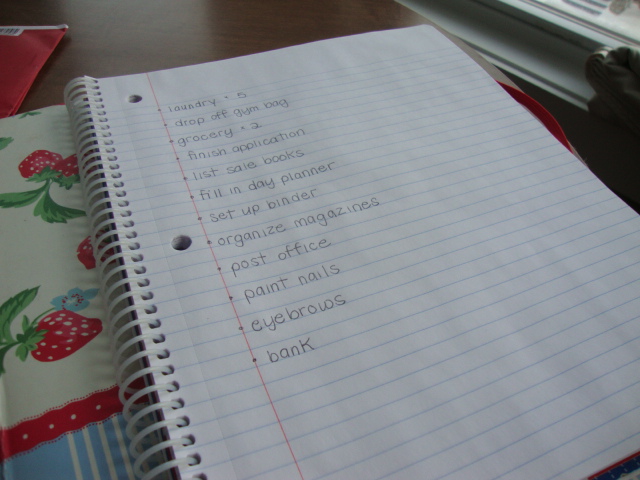 · laundry · 5
· drop off gym bag
· grocery · 2
· finish application
· list sale books
· fill in day planner
· set up binder
· organize magazines
· post office
· paint nails
· eyebrows
· bank